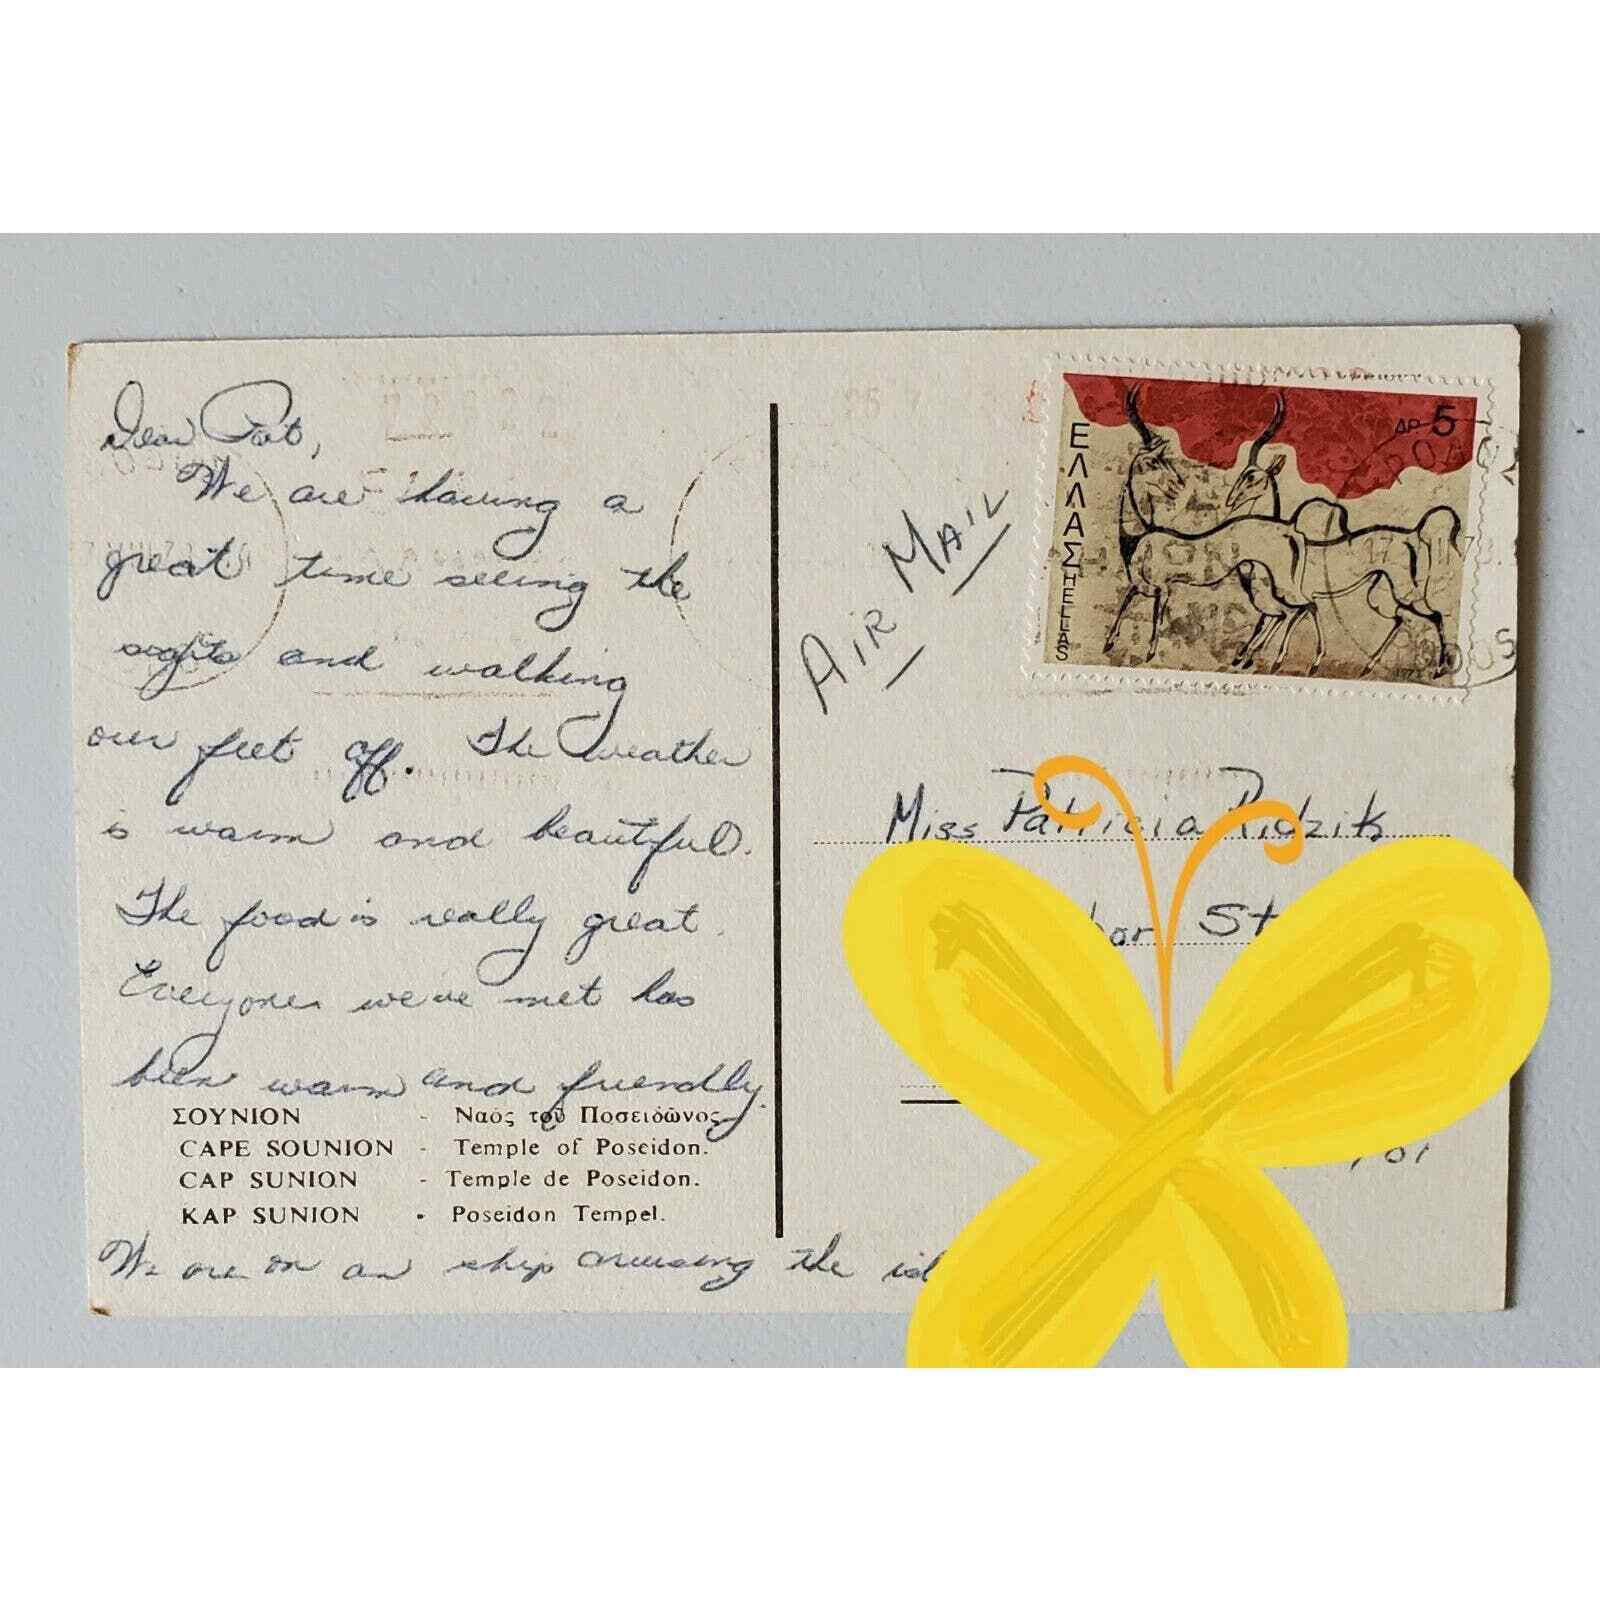 Dear Pat,
We are having a
great time seeing the
sights and walking
our feet off. The weather
is warm and beautiful.
The food is really great.
Everyone we've met has
been warm and friendly.
ΣΟΥΝΙΟΝ - Ναός τοῦ Ποσειδῶνος
CAPE SOUNION - Temple of Poseidon.
CAP SUNION - Temple de Poseidon.
KAP SUNION - Poseidon Tempel.
We are on a ship cruising the
AIR MAIL
ΕΛΛΑΣ HELLAS
ΔΡ 5
Miss Patricia Ridzik
St